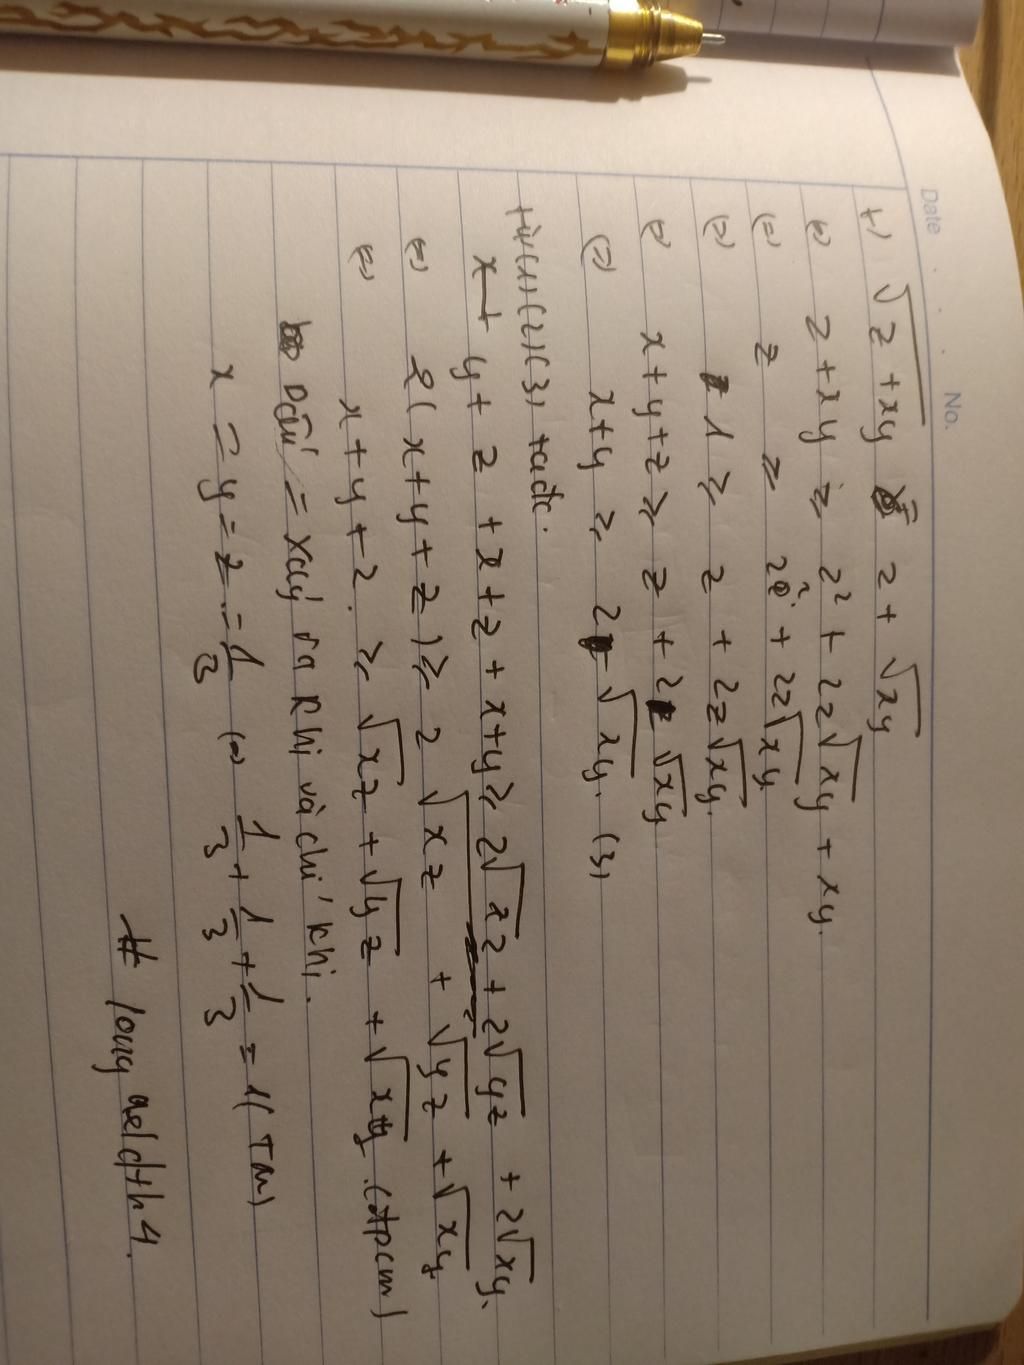 Date
No.
+) √(z+xy) ≥ z + √(xy)
(=) z + xy ≥ z² + 2z√(xy) + xy.
(=) z ≥ z² + 2z√(xy).
(=) 1 ≥ z + 2√(xy).
(=) x+y+z ≥ z + 2√(xy)
(=) x+y ≥ 2√(xy). (3)
từ (1) (2) (3) tađc.
y + z + x + z + x+y ≥ 2√(xz) + 2√(yz) + 2√(xy).
(=) 2(x+y+z) ≥ 2√(xz) + √(yz) + √(xy)
(=) x+y+z. ≥ √(xz) + √(yz) + √(xy). (đpcm)
Dấu = xảy ra khi và chỉ khi.
x = y = z = 1/3 (=) 1/3 + 1/3 + 1/3 = 1 (TM)